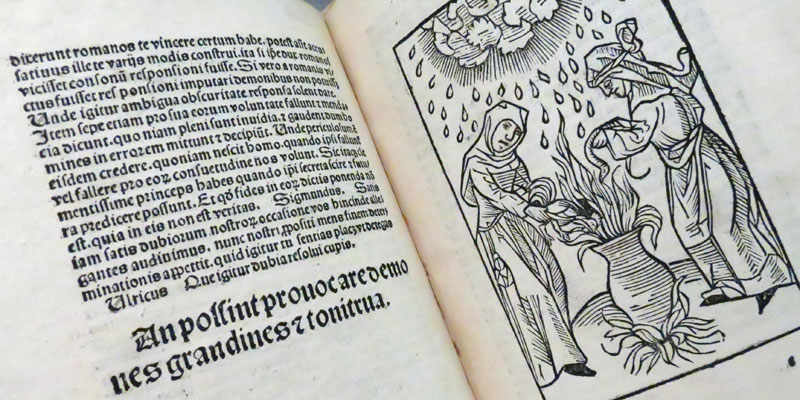 dixerunt romanos te vincere certum habe. potest aſſit accus
ſatiuus ille te varijs modis conſtrui. ita ſi ipſe dux romanos
viciſſet conſonū reſponſioni fuiſſe. Si vero a romanis vi
ctus fuiſſet reſponſioni imputari demonibus non potuiſſ
Unde igitur ambigua obſcuritate reſponſa ſolent dare.
Item ſepe etiam pro ſua eorum voluntate fallunt ⁊ menda
cia dicunt. quoniam pleni ſunt inuidia, ⁊ gaudent dum ho
mines in errorem mittunt ⁊ decipiūt. Unde periculoſum ē
eiſdem credere. quoniam neſcit homo. quando ipſi fallunt
vel fallere pro eoꝝ conſuetudine nos volunt. Sic itaqꝫ cle
mentiſſime princeps habes quando ipſi ſecreta ſcire ⁊ futu
ra predicere poſſunt. Et qꝙ fides in eoꝝ dictis ponenda nō
eſt. quia in eis non eſt veritas. Sigmundus. Sane
iam ſatis dubiorum noſtroꝝ occaſione vos bincinde alle
gantes audiuimus. nunc noſtri ꝓpoſiti mens finem
minationis appetit. quid igitur tu ſentias
Ulricus Que igitur dubia reſolui cupis.
An poſſint prouocare demo
nes grandines ⁊ tonitrua.